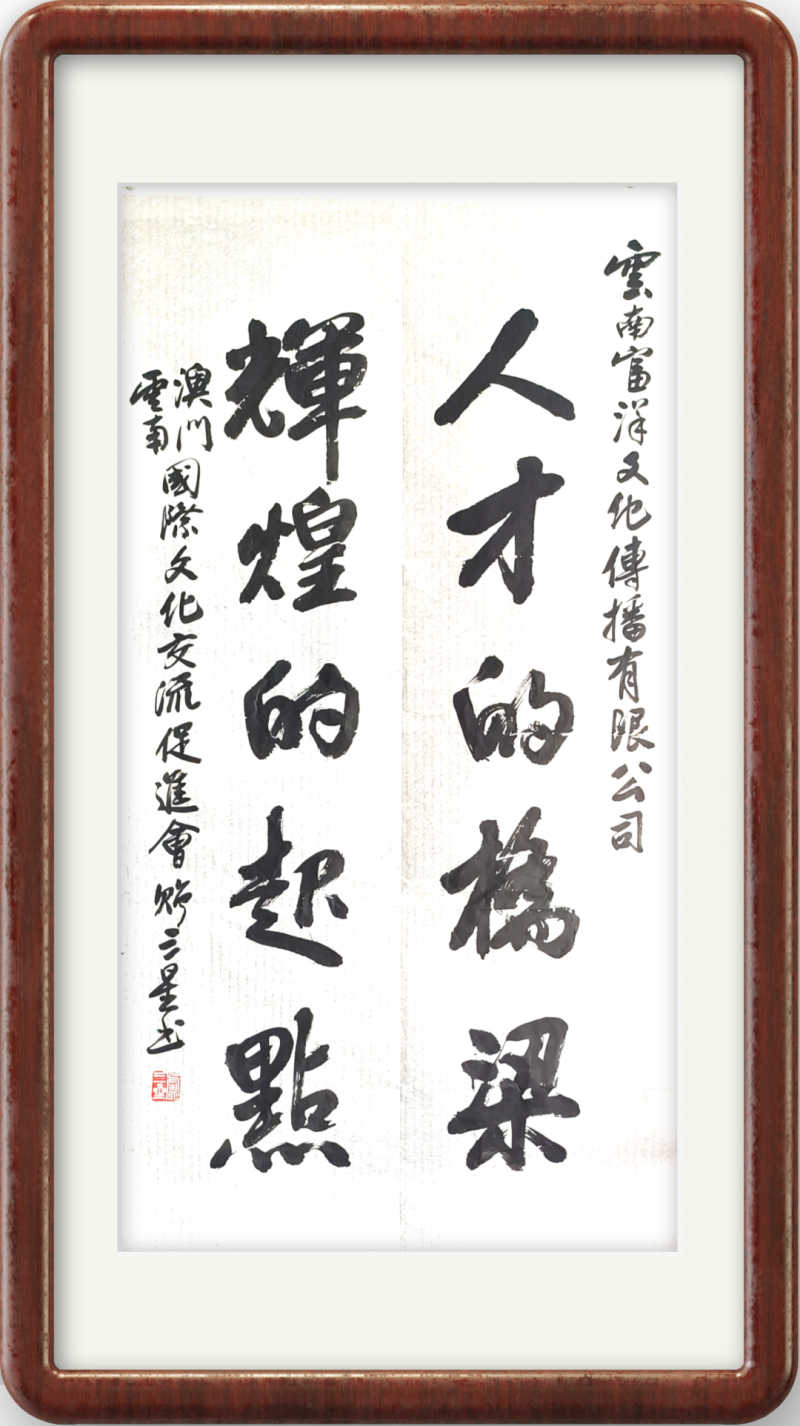 雲南富洋文化傳播有限公司
人才的橋梁
輝煌的起點
澳門
雲南
國際文化交流促進會 三星书